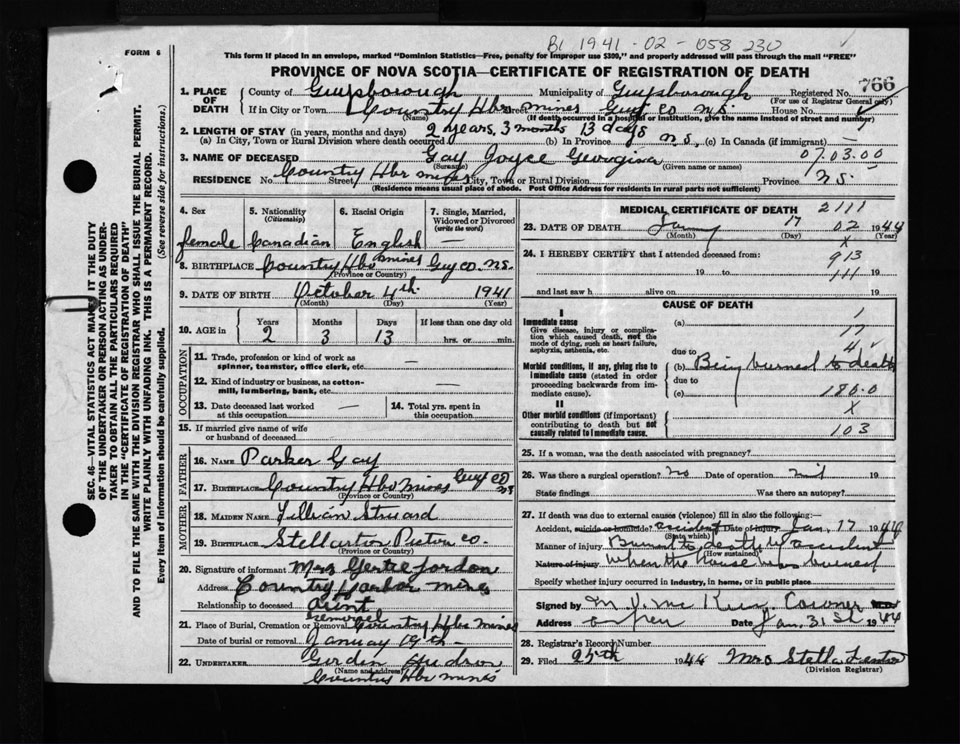 BL 1941-02-058 230
FORM 6
This form if placed in an envelope, marked "Dominion Statistics—Free, penalty for improper use $300," and properly addressed will pass through the mail "FREE"
PROVINCE OF NOVA SCOTIA—CERTIFICATE OF REGISTRATION OF DEATH
766
SEC. 46—VITAL STATISTICS ACT MAKES IT THE DUTY
OF THE UNDERTAKER OR PERSON ACTING AS UNDER-
TAKER TO OBTAIN ALL THE PARTICULARS REQUIRED
IN THE "CERTIFICATE OF REGISTRATION OF DEATH"
AND TO FILE THE SAME WITH THE DIVISION REGISTRAR WHO SHALL ISSUE THE BURIAL PERMIT.
WRITE PLAINLY WITH UNFADING INK. THIS IS A PERMANENT RECORD.
Every item of Information should be carefully supplied. (See reverse side for instructions.)
1. PLACE OF DEATH
County of Guysborough Municipality of Guysborough Registered No.
(For use of Registrar General only)
If in City or Town Country Hbr mines Street Guys Co N.S. House No.
(Name) (If death occurred in a hospital or institution, give the name instead of street and number)
2. LENGTH OF STAY (in years, months and days)
(a) In City, Town or Rural Division where death occurred 2 years, 3 months 13 days (b) In Province N.S. (c) In Canada (if immigrant) —
3. NAME OF DECEASED Gay Joyce Georgina 07.03.00
(Surname) (Given name or names)
RESIDENCE No. Country Hbr mines Street City, Town or Rural Division Province N.S.
(Residence means usual place of abode. Post Office Address for residents in rural parts not sufficient)
4. Sex female
5. Nationality (Citizenship) Canadian
6. Racial Origin English
7. Single, Married, Widowed or Divorced (write the word) —
8. BIRTHPLACE Country Hbr mines Guy co. N.S.
(Province or Country)
9. DATE OF BIRTH October 4th 1941
(Month) (Day) (Year)
10. AGE in Years 2 Months 3 Days 13 If less than one day old hrs. or min.
OCCUPATION
11. Trade, profession or kind of work as spinner, teamster, office clerk, etc. —
12. Kind of industry or business, as cotton-mill, lumbering, bank, etc. —
13. Date deceased last worked at this occupation —
14. Total yrs. spent in this occupation
15. If married give name of wife or husband of deceased
FATHER
16. NAME Parker Gay
17. BIRTHPLACE Country Hbr Mines Guy CO NS
(Province or Country)
MOTHER
18. MAIDEN NAME Lillian
19. BIRTHPLACE Stellarton Pictou Co.
(Province or Country)
20. Signature of informant Mrs Jordon
Address Country Harbor mines
Relationship to deceased Aunt
21. Place of Burial, Cremation or Removal Country Hbr Mines
Date of burial or removal January 19th
22. UNDERTAKER Gordon Hudson
(Name and address)
Country Hbr mines
MEDICAL CERTIFICATE OF DEATH 2111
23. DATE OF DEATH January 17 02 1944
(Month) (Day) (Year)
X
24. I HEREBY CERTIFY that I attended deceased from: 913
19 to 111 19
and last saw h alive on 19
CAUSE OF DEATH
I
Immediate cause
Give disease, injury or complication which caused death, not the mode of dying, such as heart failure, asphyxia, asthenia, etc.
(a) 1
17
due to 4
Morbid conditions, if any, giving rise to immediate cause (stated in order proceeding backwards from immediate cause).
(b) Being burned to death
due to
(c) 180.0
II
Other morbid conditions (if important) contributing to death but not causally related to immediate cause.
X
103
25. If a woman, was the death associated with pregnancy?
26. Was there a surgical operation? no Date of operation nil 19
State findings Was there an autopsy?
27. If death was due to external causes (violence) fill in also the following:
Accident, suicide or homicide? accident Date of injury Jan 17 1944
(State which)
Manner of injury Burned to death by accident
(How sustained)
Nature of injury When the house was burned
Specify whether injury occurred in industry, in home, or in public place
Signed by Coroner M.D.
Address Date Jan. 31st 1944
28. Registrar's Record Number
29. Filed 25th 1944 Mrs Stella Fenton
(Division Registrar)